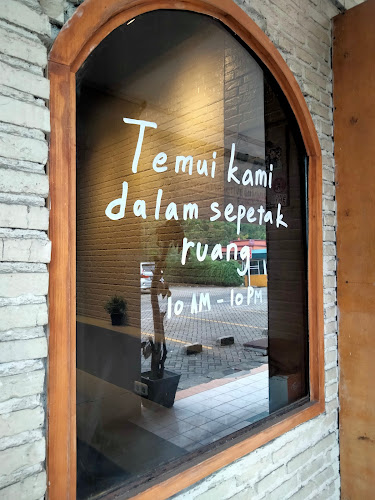 Temui kami
dalam sepetak
ruang
10 AM - 10 PM